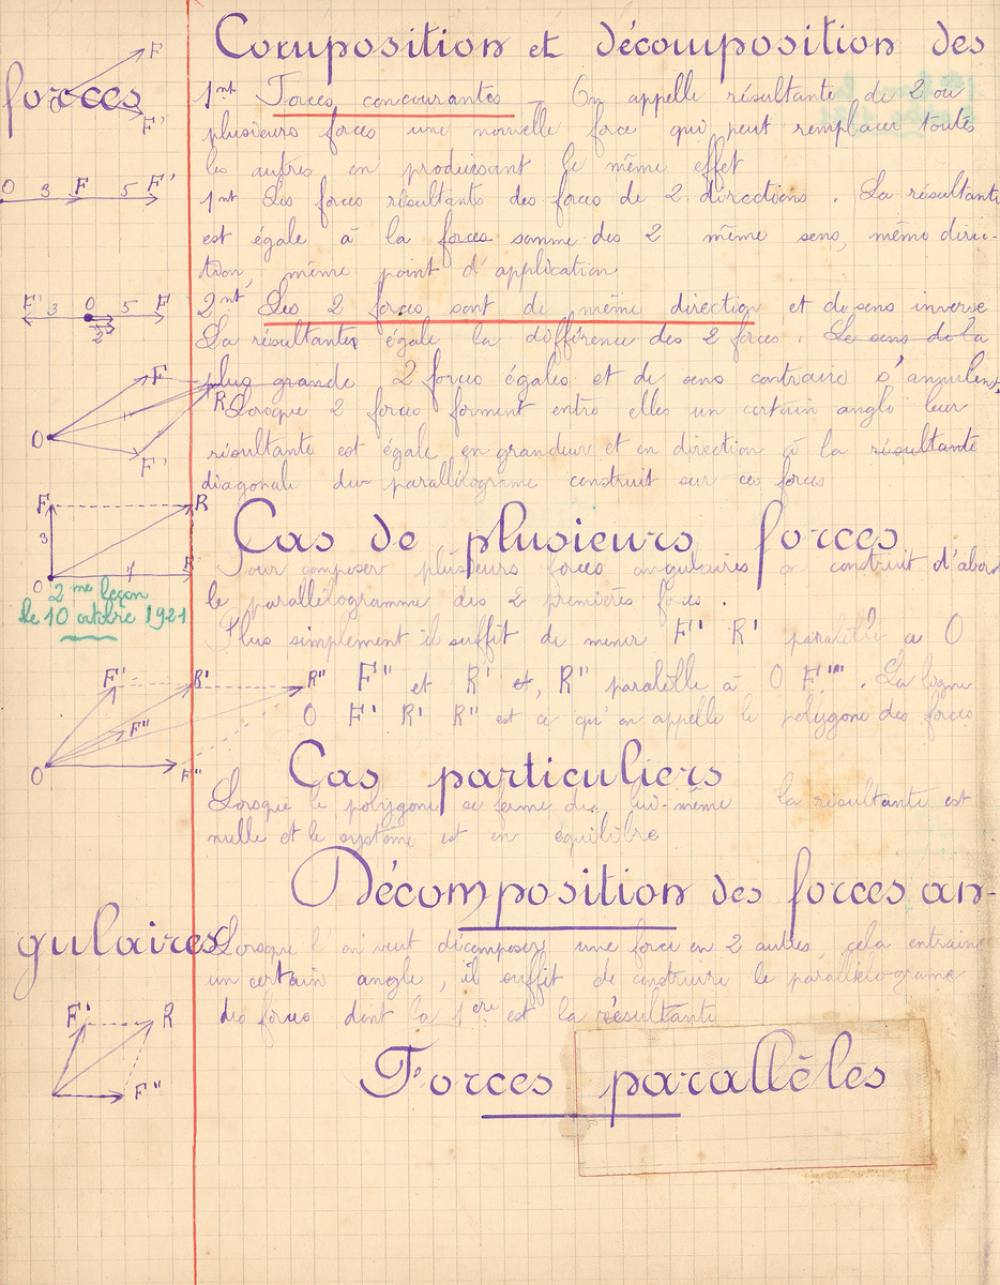 Composition et décomposition des
forces
1nt Forces concourantes _ On appelle résultante de 2 ou
plusieurs forces une nouvelle force qui peut remplacer toutes
les autres en produisant le même effet
1nt Les forces résultants des forces de 2 directions. La résultante
est égale à la forces somme des 2 même sens, même direc-
tion, même point d'application
2nt Les 2 forces sont de même direction et de sens inverse
La résultante égale la différence des 2 forces. Le sens de la
plus grande 2 forces égales et de sens contraire s'annulent
Lorsque 2 forces forment entre elles un certain angle leur
résultante est égale en grandeur et en direction à la résultante
diagonale du parallélograme construit sur ces forces
Cas de plusieurs forces
Pour composer plusieurs forces angulaires on construit d'abord
le parallélogramme des 2 premières forces.
Plus simplement il suffit de mener F' R' parallèle a O
F" et R' et, R" parallèlle à O F"'. La ligne
O F' R' R" est ce qu'on appelle le polygone des forces
Cas particuliers
Lorsque le polygone se ferme de lui-même la résultante est
nulle et le système est en équilibre
Décomposition des forces an-
gulaires
Lorsque l'on veut décomposer une force en 2 autres, cela entraine
un certain angle, il suffit de construire le parallélograme
des forces dont la 1ere est la résultante
Forces parallèles
F
F'
O 3 F 5 F'
F' 3 O 5 F
2
F
R
O
F'
F R
3
O 4 F'
2me leçon
le 10 octobre 1921
F' R' R"
F"
O F"'
F' R
F"